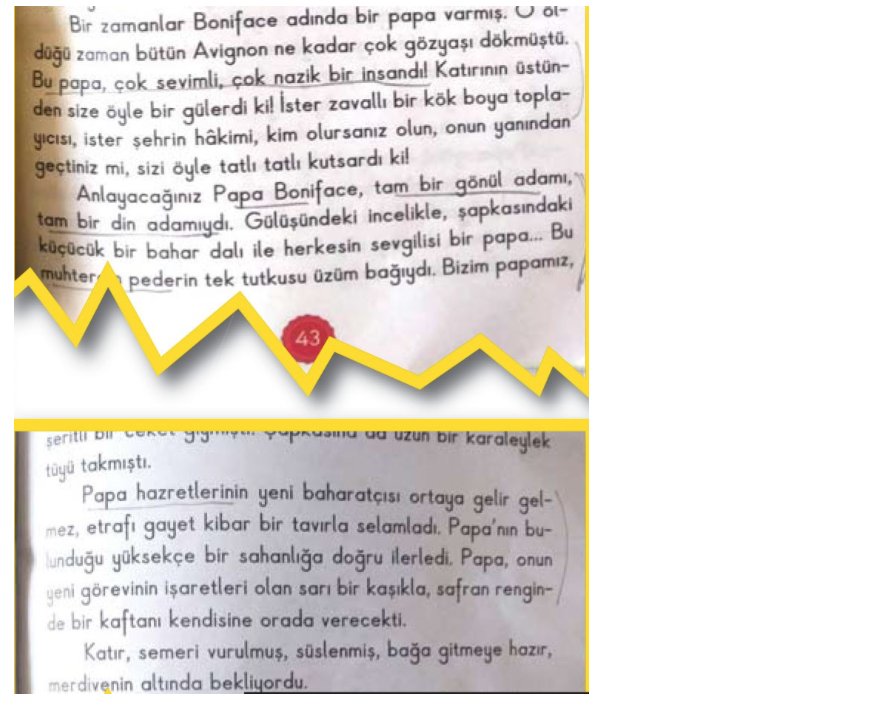 Bir zamanlar Boniface adında bir papa varmış. O öl-
düğü zaman bütün Avignon ne kadar çok gözyaşı dökmüştü.
Bu papa, çok sevimli, çok nazik bir insandı! Katırının üstün-
den size öyle bir gülerdi ki! İster zavallı bir kök boya topla-
yıcısı, ister şehrin hâkimi, kim olursanız olun, onun yanından
geçtiniz mi, sizi öyle tatlı tatlı kutsardı ki!
Anlayacağınız Papa Boniface, tam bir gönül adamı,
tam bir din adamıydı. Gülüşündeki incelikle, şapkasındaki
küçücük bir bahar dalı ile herkesin sevgilisi bir papa... Bu
pederin tek tutkusu üzüm bağıydı. Bizim papamız,
43
şeritli bir ceket giymişti. Şapkasına da uzun bir karaleylek
tüyü takmıştı.
Papa hazretlerinin yeni baharatçısı ortaya gelir gel-
mez, etrafı gayet kibar bir tavırla selamladı. Papa'nın bu-
lunduğu yüksekçe bir sahanlığa doğru ilerledi. Papa, onun
yeni görevinin işaretleri olan sarı bir kaşıkla, safran rengin-
de bir kaftanı kendisine orada verecekti.
Katır, semeri vurulmuş, süslenmiş, bağa gitmeye hazır,
merdivenin altında bekliyordu.